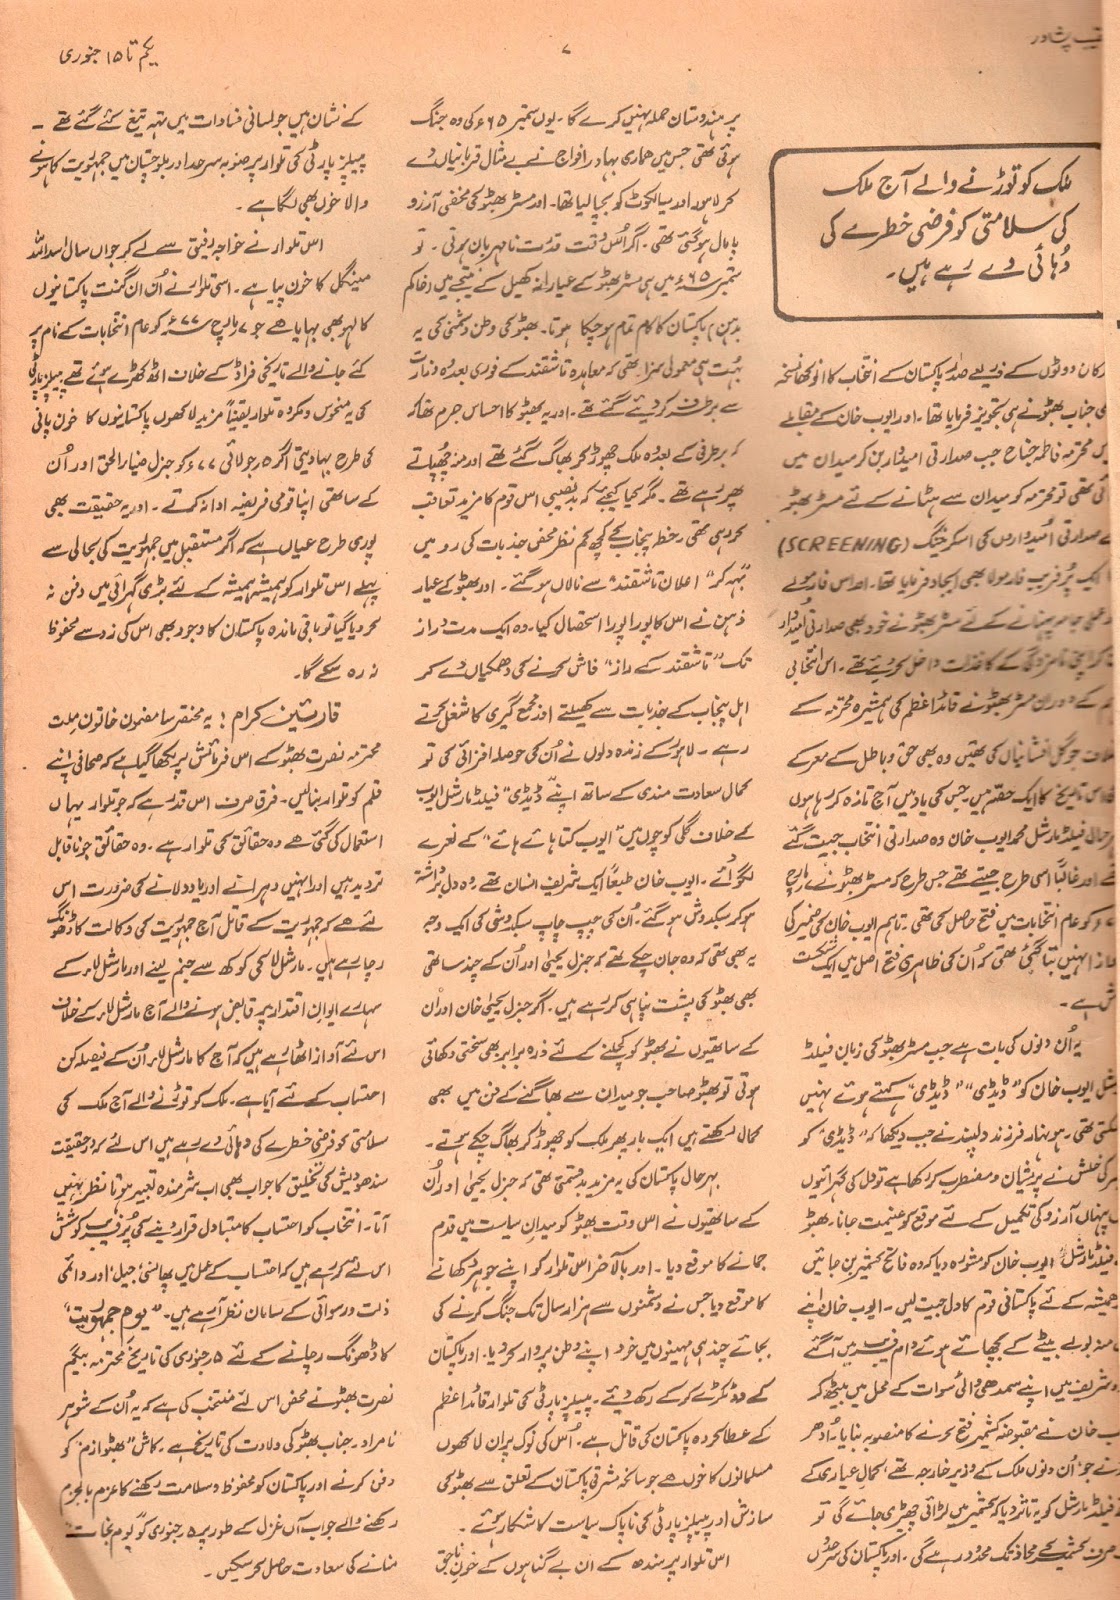 پشاور
۷
یکم تا ۱۵ جنوری
ملک کو توڑنے والے آج ملک
کی سلامتی کو فرضی خطرے کی
دُہائی دے رہے ہیں۔
کان ووٹوں کے ذریعے صدر پاکستان کے انتخاب کا انوکھا نسخہ
جناب بھٹو نے ہی تجویز فرمایا تھا۔ اور ایوب خان کے مقابلے
محترمہ فاطمہ جناح جب صدارتی امیدوار بن کر میدان میں
آئی تھی تو محترمہ کو میدان سے ہٹانے کے لئے مسٹر بھٹو
صدارتی اُمیدواروں کی اسکریننگ (SCREENING)
ایک پُر فریب فارمولا بھی ایجاد فرمایا تھا۔ اور اس فارمولے
عملی جامہ پہنانے کے لئے مسٹر بھٹو نے خود بھی صدارتی اُمیدوار
اپنی نامزدگی کے کاغذات داخل کر دیئے تھے۔ اس انتخابی
کے دوران مسٹر بھٹو نے قائد اعظم کی ہمشیرہ محترمہ کے
خلاف جو گل افشانیاں کی تھیں وہ بھی حق و باطل کے معرکے
تاریخ کا ایک حصہ ہیں۔ جس کی یاد میں آج تازہ کر رہا ہوں
فیلڈ مارشل محمد ایوب خان وہ صدارتی انتخاب جیت گئے
اور غالباً اسی طرح جیتے تھے جس طرح کہ مسٹر بھٹو نے ۷ مارچ
کو عام انتخابات میں فتح حاصل کی تھی۔ تاہم ایوب خان کی ضمیر کی
انہیں بتا گئی تھی کہ اُن کی ظاہری فتح اصل میں ایک شکست
ہے۔
یہ اُن دنوں کی بات ہے جب مسٹر بھٹو کی زبان فیلڈ
ایوب خان کو "ڈیڈی" "ڈیڈی" کہتے ہوئے نہیں
تھکتی تھی۔ ہونہار فرزند دلپسند نے جب دیکھا کہ "ڈیڈی" کو
کی خلش نے پریشان و مضطرب کر رکھا ہے تو دل کی گہرائیوں
پنہاں آرزو کی تکمیل کے لئے موقع کو غنیمت جانا۔ بھٹو
فیلڈ مارشل ایوب خان کو مشورہ دیا کہ وہ فاتح کشمیر بن جائیں
ہمیشہ کے لئے پاکستانی قوم کا دل جیت لیں۔ ایوب خان اپنے
منہ بولے بیٹے کے بچھائے ہوئے دام فریب میں آ گئے
شریف میں اپنے سمدھی والئی سوات کے محل میں بیٹھ کر
خان نے مقبوضہ کشمیر فتح کرنے کا منصوبہ بنایا۔ اُدھر
نے جو اُن دنوں ملک کے وزیر خارجہ تھے کمال عیاری کے
فیلڈ مارشل کو یہ تاثر دیا کہ کشمیر میں لڑائی چھیڑی جائے گی تو
صرف کشمیر کے محاذ تک محدود رہے گی۔ اور پاکستان کی سرحدوں
پر ہندوستان حملہ نہیں کرے گا۔ یوں ستمبر ۶۵ء کی وہ جنگ
ہوئی تھی جس میں ہماری بہادر افواج نے بے مثال قربانیاں دے
کر لاہور اور سیالکوٹ کو بچا لیا تھا۔ اور مسٹر بھٹو کی مخفی آرزو
پامال ہو گئی تھی۔ اگر اُس وقت قدرت نامہربان ہوتی۔ تو
ستمبر ۶۵ء میں ہی مسٹر بھٹو کے عیارانہ کھیل کے نتیجے میں (خاکم
بدہن) پاکستان کا کام تمام ہو چکا ہوتا۔ بھٹو کی وطن دشمنی کی یہ
بہت ہی معمولی سزا تھی کہ معاہدہ تاشقند کے فوری بعد وہ وزارت
سے برطرف کر دیئے گئے تھے۔ اور یہ بھٹو کا احساس جرم تھا کہ
کہ برطرفی کے بعد وہ ملک چھوڑ کر بھاگ گئے تھے اور منہ چھپاتے
پھر رہے تھے۔ مگر کیا کیجئے کہ بد نصیبی اس قوم کا مزید تعاقب
کر رہی تھی۔ خطہ پنجاب کے کچھ کم نظر محض جذبات کی رو میں
"بہہ کر" اعلان تاشقند سے نالاں ہو گئے۔ اور بھٹو کے عیار
ذہن نے اس کا پورا پورا استحصال کیا۔ وہ ایک مدت دراز
تک "تاشقند کے راز" فاش کرنے کی دھمکیاں دے کر
اہل پنجاب کے جذبات سے کھیلتے اور مجمع گیری کا شغل کرتے
رہے۔ لاہور کے زندہ دلوں نے اُن کی حوصلہ افزائی کی تو
کمال سعادت مندی کے ساتھ اپنے "ڈیڈی" فیلڈ مارشل ایوب
کے خلاف گلی کوچوں میں "ایوب کتا ہائے ہائے" کے نعرے
لگوائے۔ ایوب خان طبعاً ایک شریف انسان تھے وہ دل برداشتہ
ہو کر سبکدوش ہو گئے۔ اُن کی چپ چاپ سبکدوشی کی ایک وجہ
یہ بھی تھی کہ وہ جان چکے تھے کہ جنرل یحییٰ اور اُن کے چند ساتھی
بھی بھٹو کی پشت پناہی کر رہے ہیں۔ اگر جنرل یحییٰ خان اور ان
کے ساتھیوں نے بھٹو کو کچلنے کے لئے ذرہ برابر بھی سختی دکھائی
ہوتی تو بھٹو صاحب جو میدان سے بھاگنے کے فن میں بھی
کمال رکھتے ہیں ایک بار پھر ملک کو چھوڑ کر بھاگ چکے ہوتے۔
بہرحال پاکستان کی یہ مزید بدقسمتی تھی کہ جنرل یحییٰ اور اُن
کے ساتھیوں نے اس وقت بھٹو کو میدان سیاست میں قدم
جمانے کا موقع دیا۔ اور بالآخر اس تلوار کو اپنے جوہر دکھانے
کا موقع دیا جس نے دشمنوں سے ہزار سال تک جنگ کرنے کی
بجائے چند ہی مہینوں میں خود اپنے وطن پر وار کر دیا۔ اور پاکستان
کے دو ٹکڑے کر کے رکھ دیئے۔ پیپلز پارٹی کی تلوار قائد اعظم
کے عطا کردہ پاکستان کی قاتل ہے۔ اُس کی نوک پر ان لاکھوں
مسلمانوں کا خوں ہے جو سانحہ مشرقی پاکستان کے تعلق سے بھٹو کی
سازش اور پیپلز پارٹی کی ناپاک سیاست کا شکار ہوئے۔
اس تلوار پر سندھ کے ان بے گناہوں کے خونِ ناحق
کے نشان ہیں جو لسانی فسادات میں تہہ تیغ کئے گئے تھے۔
پیپلز پارٹی کی تلوار پر صوبہ سرحد اور بلوچستان میں جمہوریت کا ہونے
والا خوں بھی لگا ہے۔
اس تلوار نے خواجہ رفیق سے لے کر جواں سال اسد اللہ
مینگل کا خون پیا ہے۔ اسی تلوار نے اُن ان گنت پاکستانیوں
کا لہو بھی بہایا ہے جو ۷ مارچ ۷۷ء کو عام انتخابات کے نام پر
کئے جانے والے تاریخی فراڈ کے خلاف اٹھ کھڑے ہوئے تھے۔ پیپلز پارٹی
کی یہ منحوس و مکروہ تلوار یقیناً مزید لاکھوں پاکستانیوں کا خون پانی
کی طرح بہا دیتی اگر ۵ جولائی ۷۷ء کو جنرل ضیاء الحق اور اُن
کے ساتھی اپنا قومی فریضہ ادا نہ کرتے۔ اور یہ حقیقت بھی
پوری طرح عیاں ہے کہ اگر مستقبل میں جمہوریت کی بحالی سے
پہلے اس تلوار کو ہمیشہ ہمیشہ کے لئے بڑی گہرائی میں دفن نہ
کر دیا گیا تو باقی ماندہ پاکستان کا وجود بھی اس کی زد سے محفوظ
نہ رہ سکے گا۔
قارئین کرام! یہ مختصر سا مضمون خاتون ملت
محترمہ نصرت بھٹو کے اس فرمائش پر لکھا گیا ہے کہ صحافی اپنے
قلم کو تلوار بنا لیں۔ فرق صرف اس قدر ہے کہ جو تلوار یہاں
استعمال کی گئی ہے وہ حقائق کی تلوار ہے۔ وہ حقائق جو ناقابل
تردید ہیں اور انہیں دہرانے اور یاد دلانے کی ضرورت اس
لئے ہے کہ جمہوریت کے قاتل آج جمہوریت کی وکالت کا ڈھونگ
رچا رہے ہیں۔ مارشل لا کی کوکھ سے جنم لینے اور مارشل لاء کے
سہارے ایوان اقتدار پر قابض ہونے والے آج مارشل لاء کے خلاف
اس لئے آواز اٹھا رہے ہیں کہ آج کا مارشل لاء اُن کے فیصلہ کن
احتساب کے لئے آیا ہے۔ ملک کو توڑنے والے آج ملک کی
سلامتی کو فرضی خطرے کی دہائی دے رہے ہیں اس لئے کہ درحقیقت
سندھو دیش کی تخلیق کا خواب بھی اب شرمندہ تعبیر ہوتا نظر نہیں
آتا۔ انتخاب کو احتساب کا متبادل قرار دینے کی پُر فریب کوشش
اس لئے کر رہے ہیں کہ احتساب کے عمل میں پھانسی، جیل، اور دائمی
ذلت و رسوائی کے سامان نظر آ رہے ہیں۔ "یوم جمہوریت"
کا ڈھونگ رچانے کے لئے ۵ جنوری کی تاریخ محترمہ بیگم
نصرت بھٹو نے محض اس لئے منتخب کی ہے کہ یہ اُن کے شوہر
نامراد۔ جناب بھٹو کی ولادت کی تاریخ ہے۔ کاش "بھٹو ازم" کو
دفن کرنے اور پاکستان کو محفوظ و سلامت رکھنے کا عزم بالجزم
رکھنے والے جواب آں غزل کے طور پر ۵ جنوری کو "یوم نجات"
منانے کی سعادت حاصل کر سکیں۔